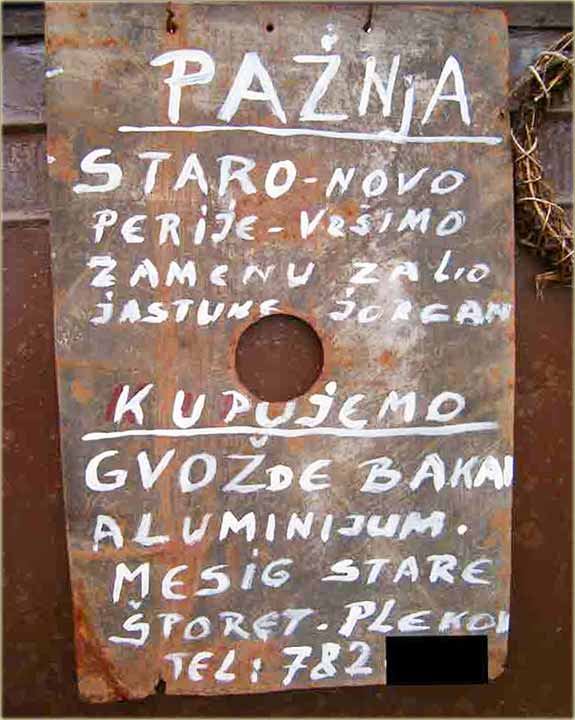 PAŽNjA
STARO-NOVO
PERIJE-VRŠIMO
ZAMENU ZA LIO
JASTUKE JORGAN
KUPUJEMO
GVOŽĐE BAKAR
ALUMINIJUM.
MESIG STARE
ŠPORET-PLEKOV
TEL: 782